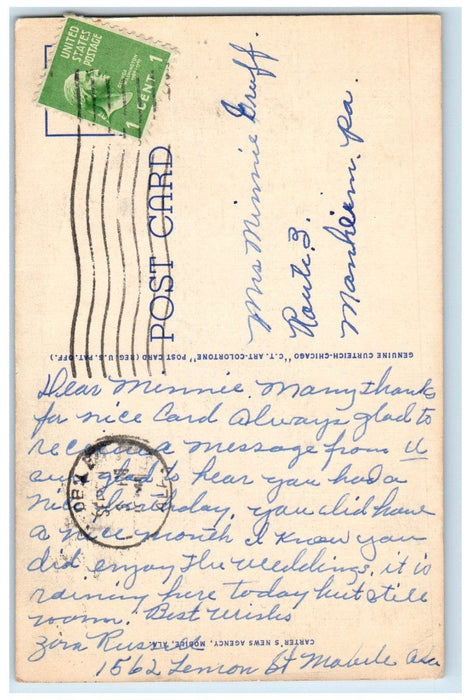 UNITED
STATES
POSTAGE
1 CENT 1
POST CARD
Mrs Minnie Gruff.
Route. 3.
Manheim. Pa.
GENUINE CURTEICH-CHICAGO "C.T. ART-COLORTONE" POST CARD (REG. U.S. PAT. OFF.)
Dear Minnie. Many thanks
for nice Card always glad to
receive a message from U
am glad to hear you had a
nice birthday, you did have
a nice month I know you
did enjoy the weddings, it is
raining here today but still
warm. Best wishes
Zora Russ
1562 Lemon St Mobile Ala
CARTER'S NEWS AGENCY, MOBILE, ALA.
SEP